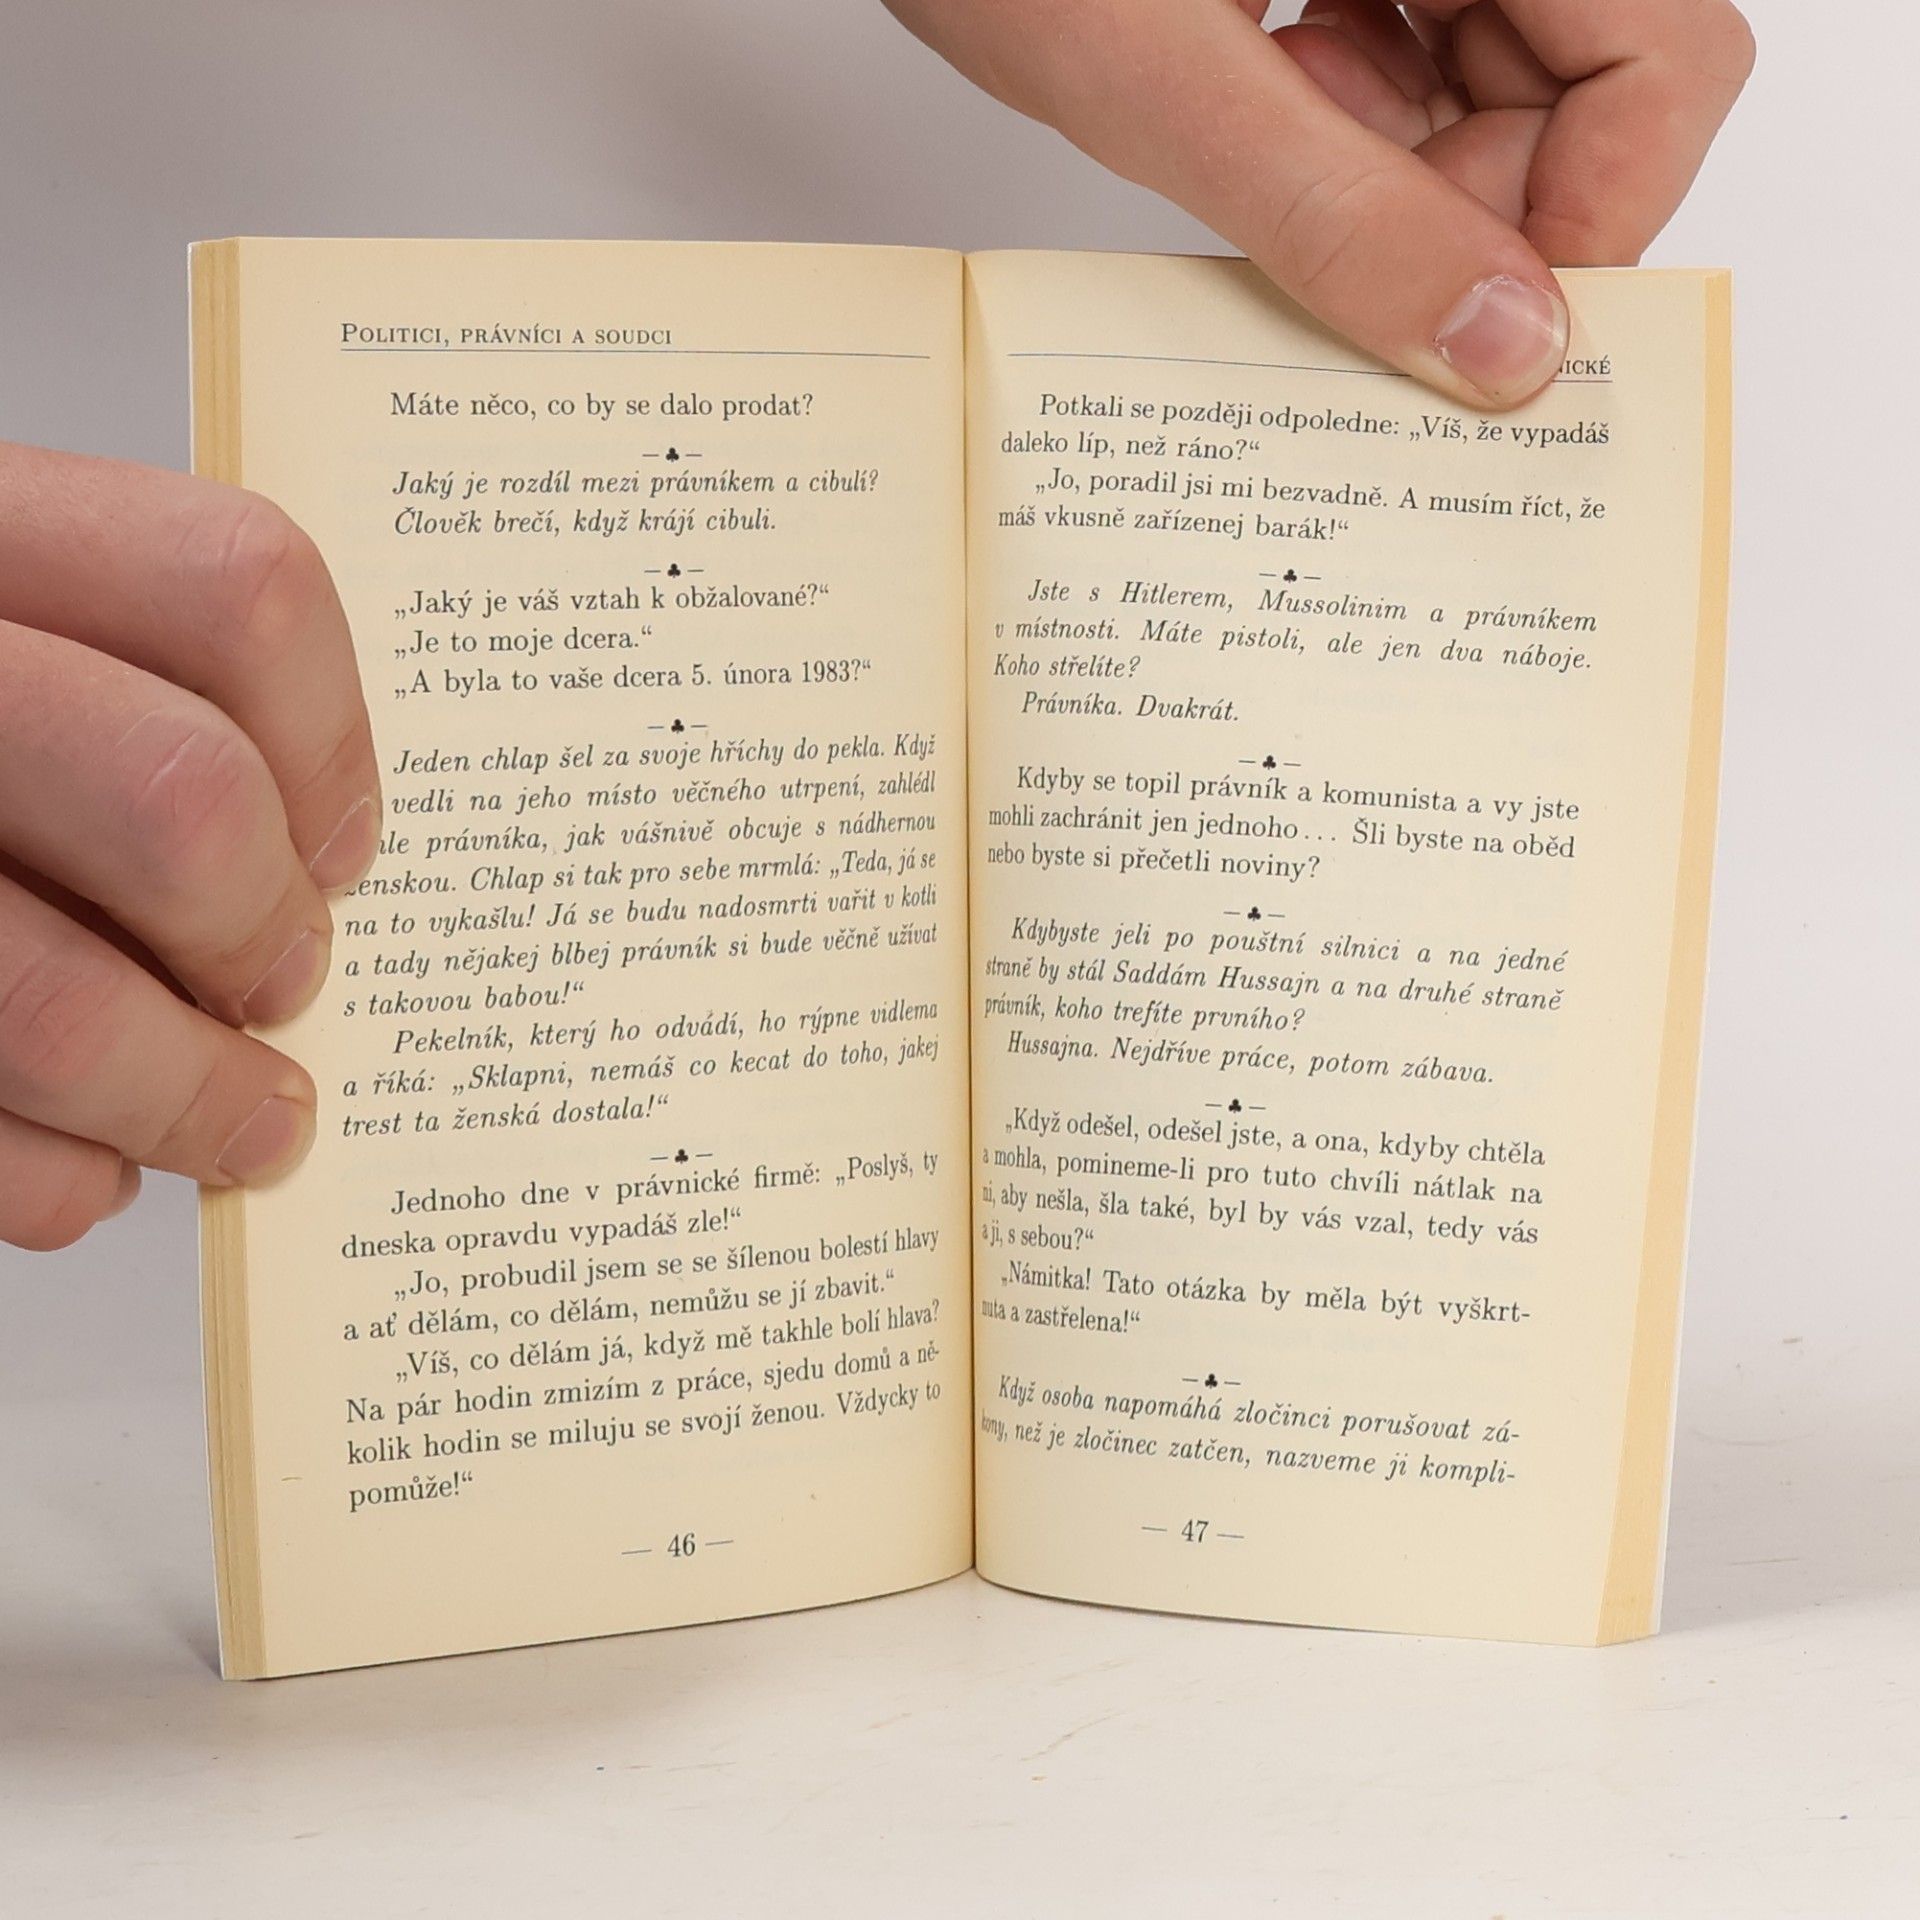 Politici, právníci a soudci
Máte něco, co by se dalo prodat?
— ♣ —
Jaký je rozdíl mezi právníkem a cibulí?
Člověk brečí, když krájí cibuli.
— ♣ —
„Jaký je váš vztah k obžalované?“
„Je to moje dcera.“
„A byla to vaše dcera 5. února 1983?“
— ♣ —
Jeden chlap šel za svoje hříchy do pekla. Když
vedli na jeho místo věčného utrpení, zahlédl
právníka, jak vášnivě obcuje s nádhernou
ženskou. Chlap si tak pro sebe mrmlá: „Teda, já se
na to vykašlu! Já se budu nadosmrti vařit v kotli
a tady nějakej blbej právník si bude věčně užívat
s takovou babou!“
Pekelník, který ho odvádí, ho rýpne vidlema
a říká: „Sklapni, nemáš co kecat do toho, jakej
trest ta ženská dostala!“
— ♣ —
Jednoho dne v právnické firmě: „Poslyš, ty
dneska opravdu vypadáš zle!“
„Jo, probudil jsem se se šílenou bolestí hlavy
a ať dělám, co dělám, nemůžu se jí zbavit.“
„Víš, co dělám já, když mě takhle bolí hlava?
Na pár hodin zmizím z práce, sjedu domů a ně-
kolik hodin se miluju se svojí ženou. Vždycky to
pomůže!“
— 46 —
Potkali se později odpoledne: „Víš, že vypadáš
daleko líp, než ráno?“
„Jo, poradil jsi mi bezvadně. A musím říct, že
máš vkusně zařízenej barák!“
— ♣ —
Jste s Hitlerem, Mussolinim a právníkem
v místnosti. Máte pistoli, ale jen dva náboje.
Koho střelíte?
Právníka. Dvakrát.
— ♣ —
Kdyby se topil právník a komunista a vy jste
mohli zachránit jen jednoho... Šli byste na oběd
nebo byste si přečetli noviny?
— ♣ —
Kdybyste jeli po pouštní silnici a na jedné
straně by stál Saddám Hussajn a na druhé straně
právník, koho trefíte prvního?
Hussajna. Nejdříve práce, potom zábava.
— ♣ —
„Když odešel, odešel jste, a ona, kdyby chtěla
a mohla, pomineme-li pro tuto chvíli nátlak na
ni, aby nešla, šla také, byl by vás vzal, tedy vás
a ji, s sebou?“
„Námitka! Tato otázka by měla být vyškrt-
nuta a zastřelena!“
— ♣ —
Když osoba napomáhá zločinci porušovat zá-
kony, než je zločinec zatčen, nazveme ji kompli-
— 47 —